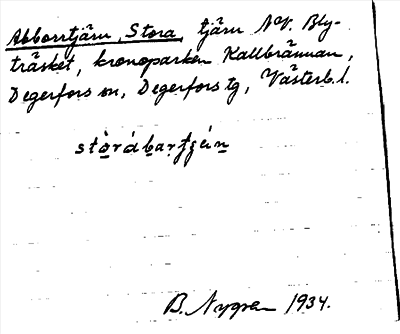 Abborrtjärn, Stora, tjärn NV. Bly-
träsket, kronoparken Kallbrännan,
Degerfors sn, Degerfors tg, Västerb. l.
stòrábar̥tjɛ́n
B. Nygren 1934.